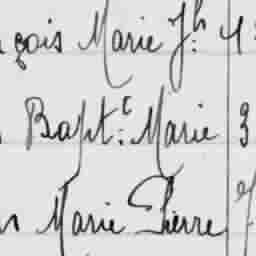 çois Marie Jh
Bapt.e Marie 3
Marie Pierre